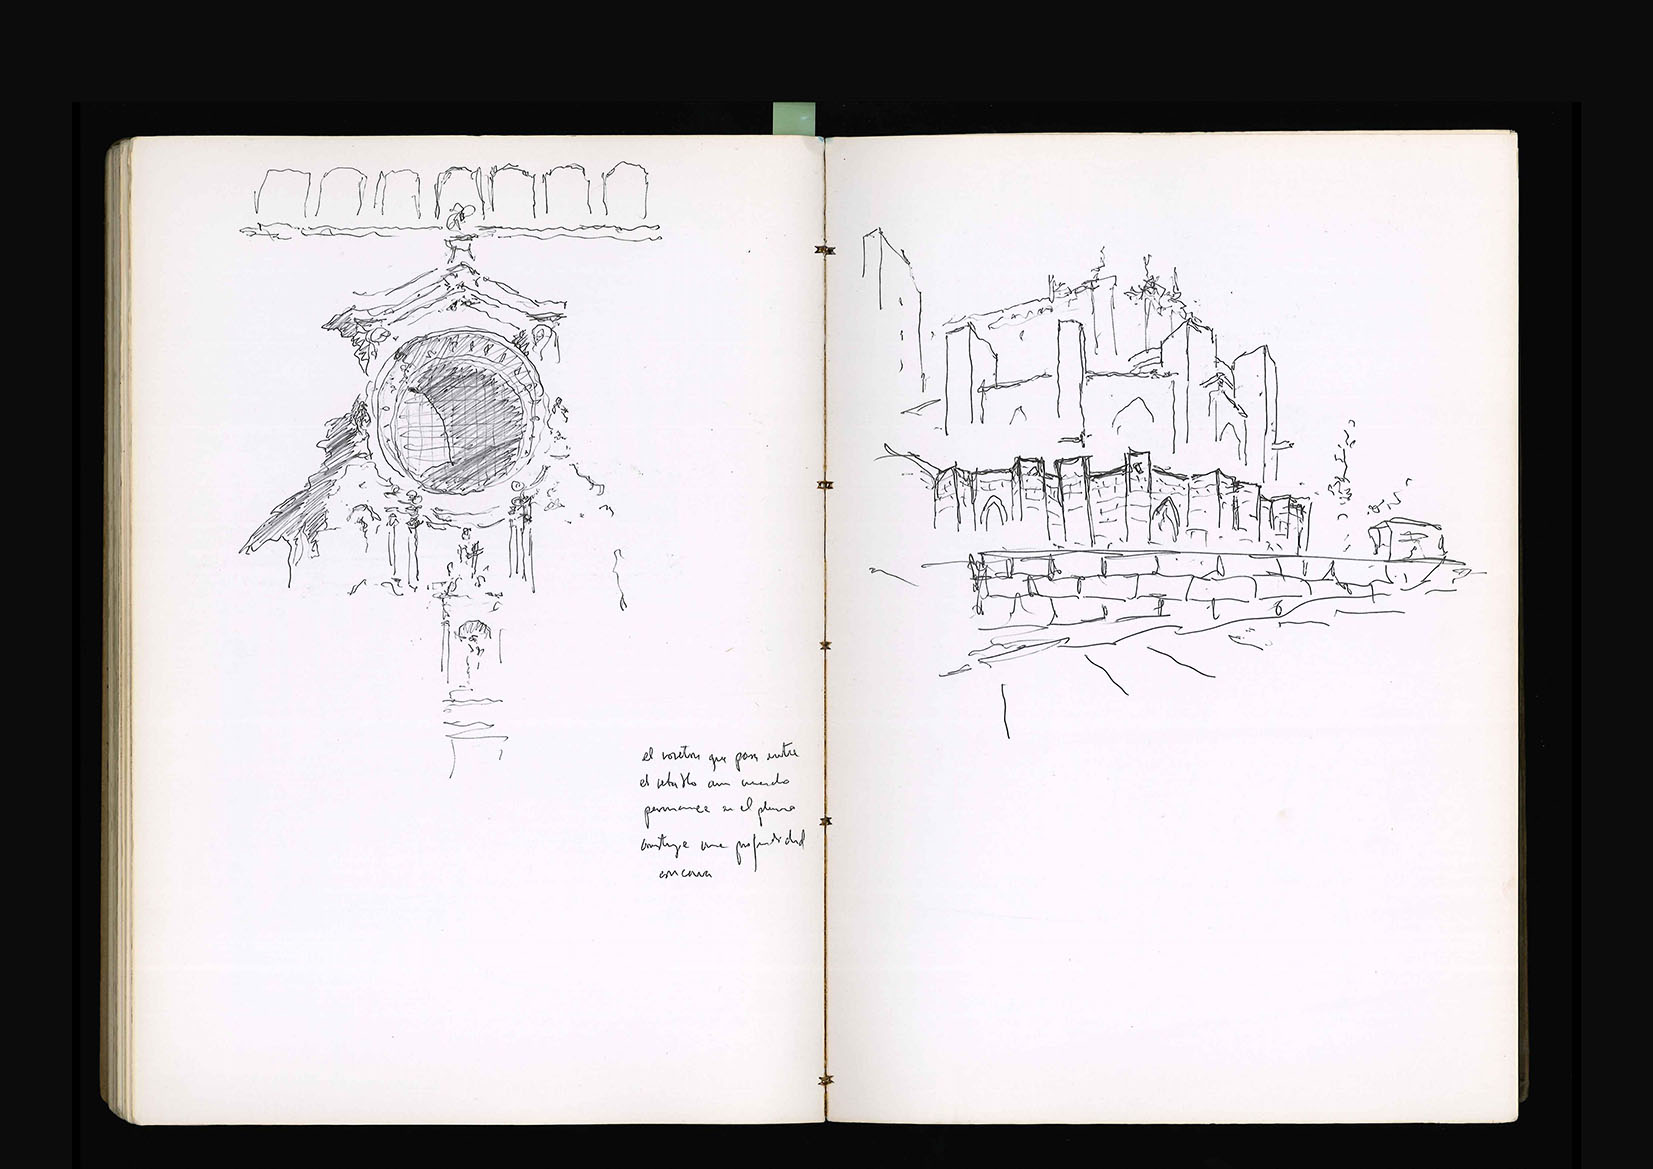 el que pasa entre
el retablo aun cuando
permanece en el plano
construye una profundidad
concava